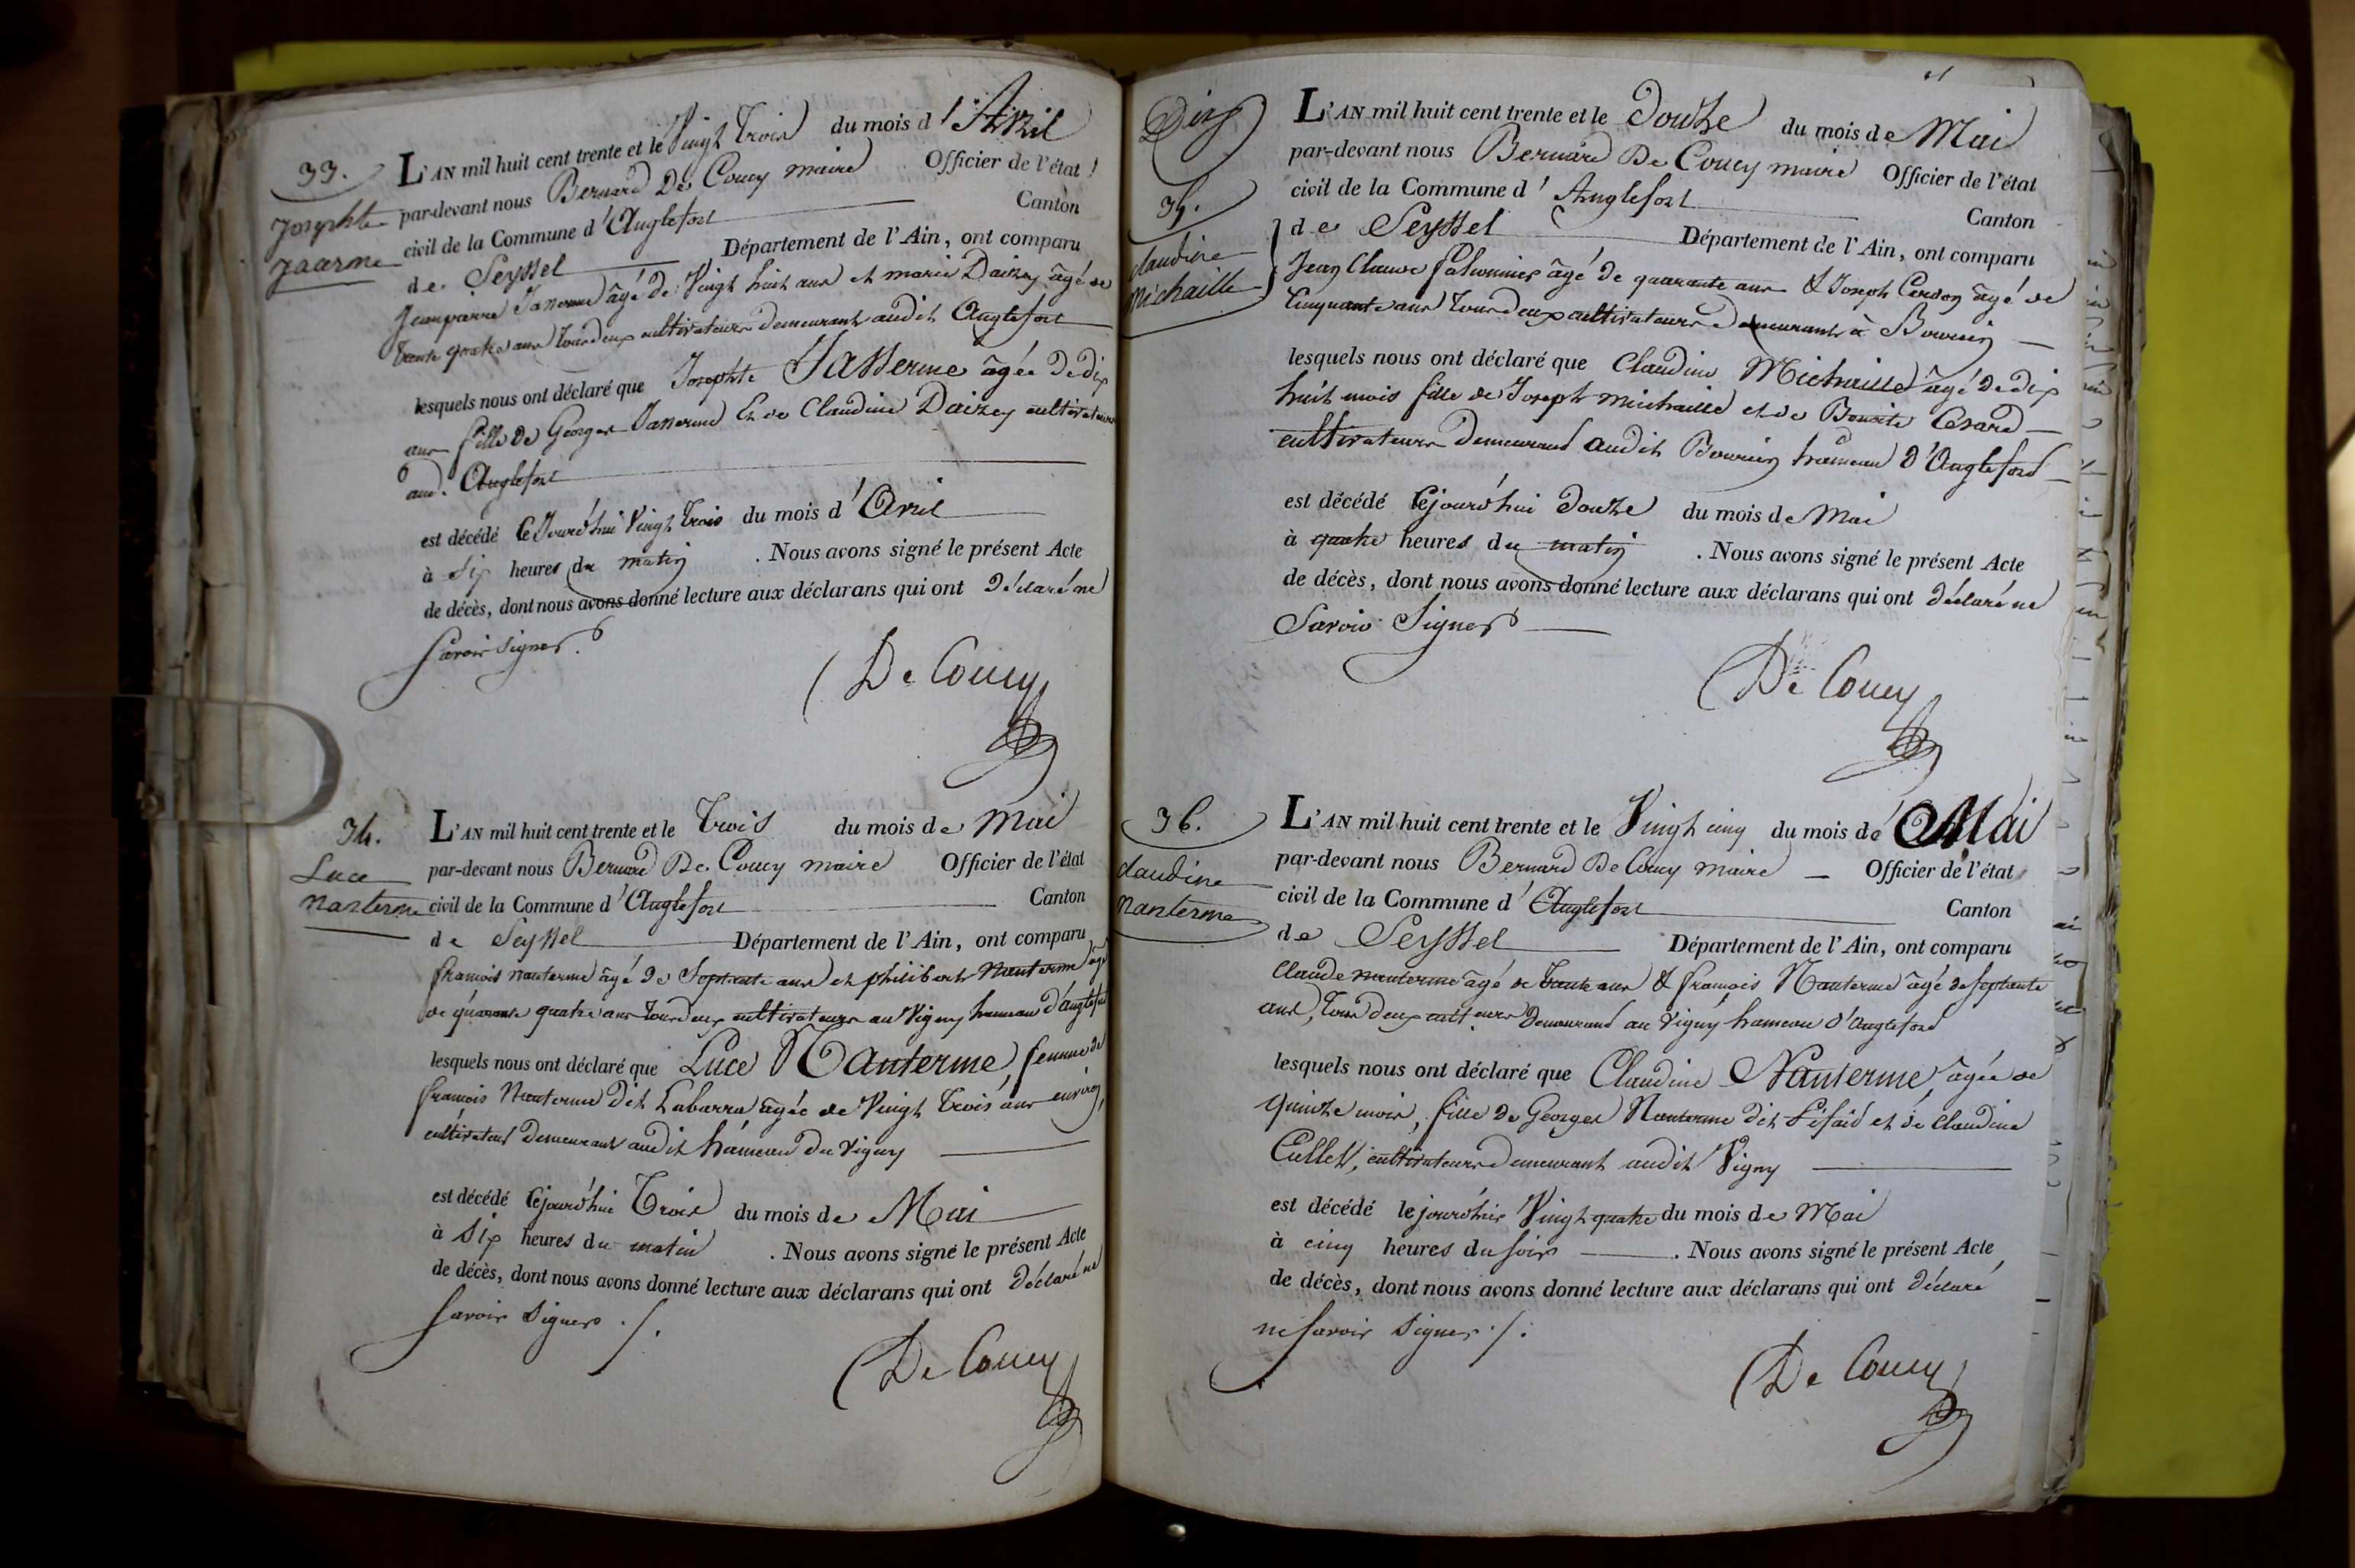 33.
Josephte
Jaserme
L'AN mil huit cent trente et le Vingt Trois du mois d'Avril
par-devant nous Bernard De Coucy maire Officier de l'état
civil de la Commune d'Anglefort Canton
de Seyssel Département de l'Ain, ont comparu
Jeanpierre Jasserme âgé de Vingt huit ans et marie Daizey âgé de
trente quatre ans tous deux cultivateurs demeurant audit Anglefort
lesquels nous ont déclaré que Josephte Jasserme âgée de dix
ans fille de Georges Jasserme Et de Claudine Daizey cultivateurs
aud. Anglefort
est décédé Cejourd'hui Vingt Trois du mois d'Avril
à Six heures du matin . Nous avons signé le présent Acte
de décès, dont nous avons donné lecture aux déclarans qui ont déclaré ne
Savoir signer.
De Coucy
34.
Luce
Nanterme
L'AN mil huit cent trente et le Trois du mois de Mai
par-devant nous Bernard De Coucy maire Officier de l'état
civil de la Commune d'Anglefort Canton
de Seyssel Département de l'Ain, ont comparu
françois nanterme âgé de Septante ans et philibert Nanterme âgé
de quarante quatre ans tous deux cultivateurs au Vigny hameau d'anglefort
lesquels nous ont déclaré que Luce Nanterme, femme de
françois Nanterme dit Labarre âgée de Vingt Trois ans environ,
cultivateurs demeurant audit hameau du Vigny
est décédé Cejourd'hui Trois du mois de Mai
à Six heures du matin . Nous avons signé le présent Acte
de décès, dont nous avons donné lecture aux déclarans qui ont déclaré ne
Savoir Signer ./.
De Coucy
35.
Claudine
Michaille
L'AN mil huit cent trente et le Douze du mois de Mai
par-devant nous Bernard De Coucy maire Officier de l'état
civil de la Commune d'Anglefort Canton
de Seyssel Département de l'Ain, ont comparu
Jean Claude âgé de quarante ans & Joseph Cerdon âgé de
Cinquante ans tous deux cultivateurs demeurants à
lesquels nous ont déclaré que Claudine Michaille âgé de dix
huit mois fille de Joseph michaille et de Benoite
cultivateurs demeurant audit hameau d'Anglefort
est décédé Cejourd'hui Douze du mois de Mai
à quatre heures du matin . Nous avons signé le présent Acte
de décès, dont nous avons donné lecture aux déclarans qui ont déclaré ne
Savoir Signer
De Coucy
36.
Claudine
Nanterme
L'AN mil huit cent trente et le Vingt cinq du mois de Mai
par-devant nous Bernard De Coucy maire Officier de l'état
civil de la Commune d'Anglefort Canton
de Seyssel Département de l'Ain, ont comparu
Claude nanterme âgé de trente ans & françois Nanterme âgé de septante
ans, tous deux cult.eurs demeurant au Vigny hameau d'Anglefort
lesquels nous ont déclaré que Claudine Nanterme, âgée de
quinze mois, fille de Georges Nanterme dit et de Claudine
Cullet, cultivateurs demeurant audit Vigny
est décédé le jourd'hier Vingt quatre du mois de Mai
à cinq heures du soir . Nous avons signé le présent Acte
de décès, dont nous avons donné lecture aux déclarans qui ont déclaré
ne Savoir Signer ./.
De Coucy